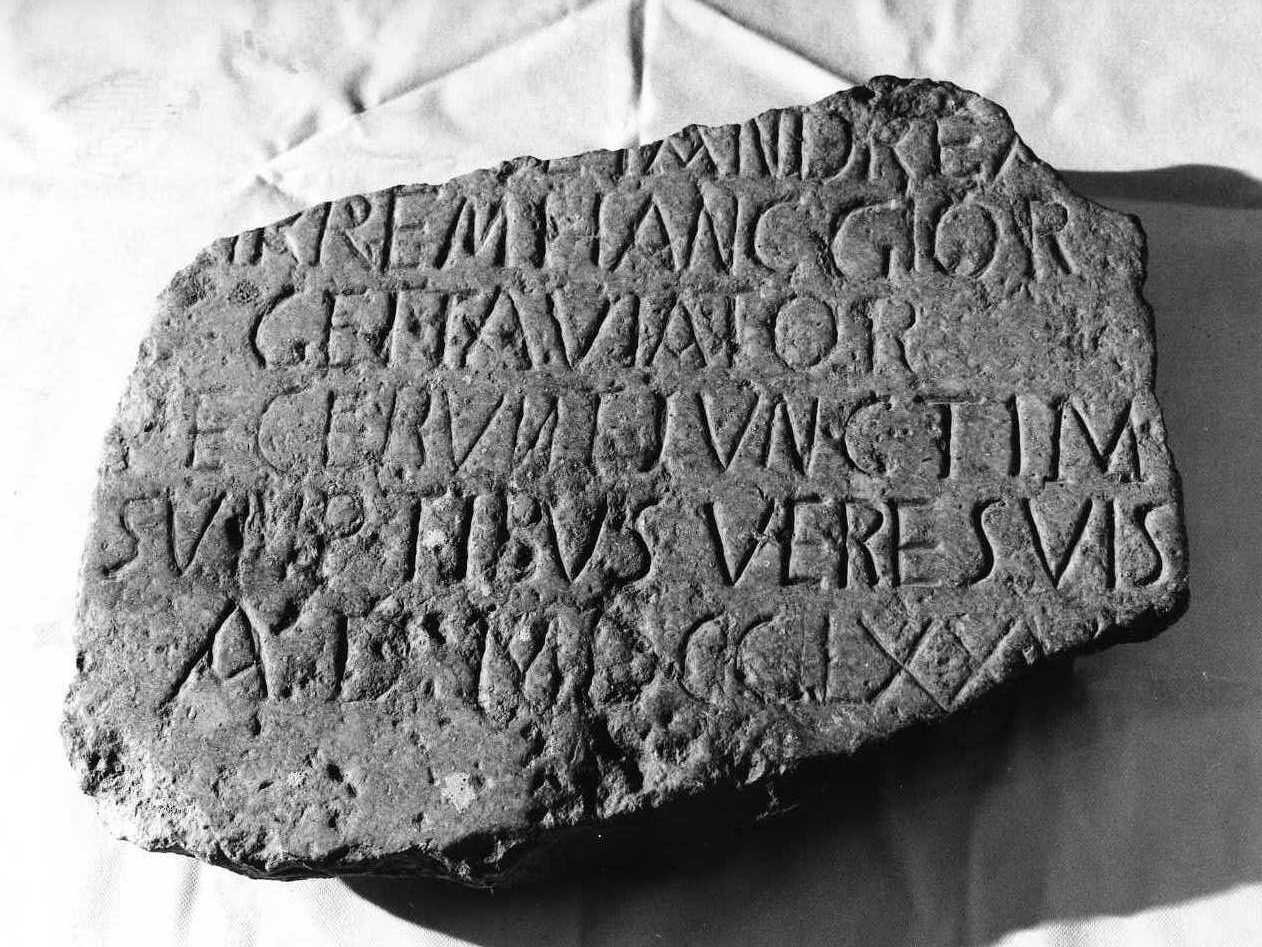 MNDREA
RREM HANC GIOR
GENTAVIATOR
ECERVNT IVNCTIM
SVMPTIBVS VERE SVIS
AN D M CCLXX